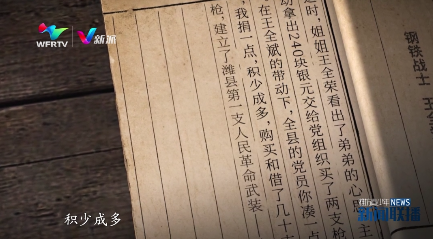 WFRTV
钢铁战士 王
时，姐姐王全荣看出了弟弟的心
主
动拿出240块银元交给党组织买了两支枪
在王全斌的带动下，全县的党员你凑一点
我捐一点，积少成多，购买和借了几十
枪，建立了潍县第一支人民革命武装
积少成多
NEWS
联播